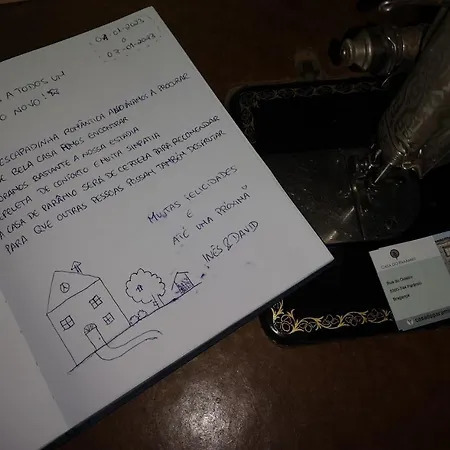 01-01-2023
a
03-01-2023
A TODOS UM
O NOVO!
ESCAPADINHA ROMÂNTICA ANDÁVAMOS À PROCURAR
E BELA CASA FOMOS ENCONTRAR
ORÁMOS BASTANTE A NOSSA ESTADIA
REPLETA DE CONFORTO E MUITA SIMPATIA
A CASA DE PARÂMIO SERÁ DE CERTEZA PARA RECOMENDAR
PARA QUE OUTRAS PESSOAS POSSAM TAMBÉM DESFRUTAR
MUITAS FELICIDADES
E
ATÉ UMA PRÓXIMA
INÊS & DAVID
CASA DO PARÂMIO
Rua do Outeiro
Parâmio
Bragança